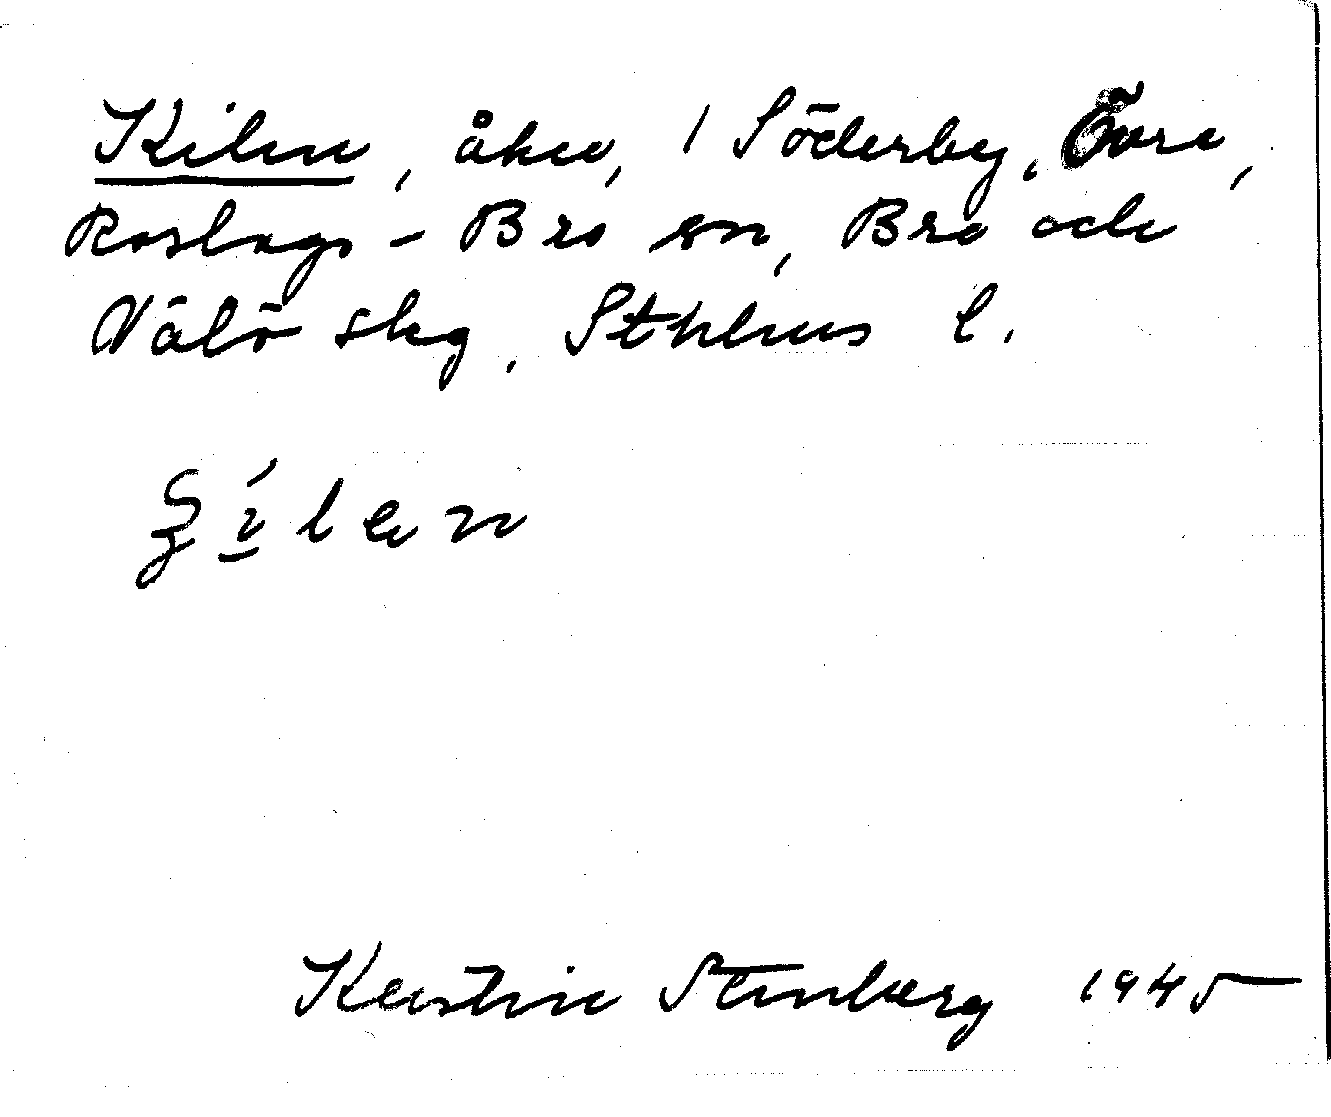 Kilen, åker, 1 Söderby, Övre,
Roslags-Bro sn, Bro och
Vätö skg, Sthlms l.
Kerstin Stenberg 1945